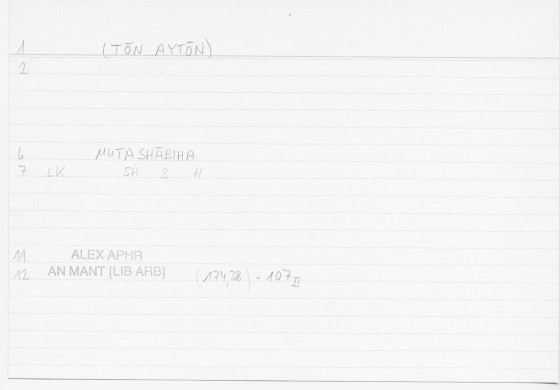 1 (TŌN AYTŌN)
2
6 MUTASHĀBIHA
7 LK SH 8 H
11 ALEX APHR
12 AN MANT [LIB ARB] (174,28) = 107 II